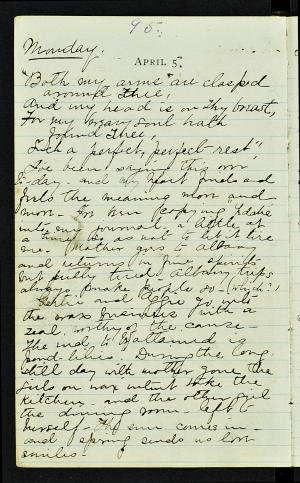 95.
Monday.
APRIL 5.
"Both my arms are clasped
around Thee,
And my head is on Thy breast,
For my weary soul hath
found Thee,
Such a perfect, perfect rest",
I've been saying this over
to-day - and my heart finds and
feels the meaning more and
more - for him copying
into my Journal, a little at
a time so as not to hurt
me. Mother goes to Albany
and returns in fine spirits
but pretty tired. Albany trips
always make people so - (which?)
Gertie and go into
the wax business with a
zeal, worthy of the cause -
The end, to be attained is
pond-lilies. During the long,
still day with mother gone, the
girls on wax intent take the
kitchen - and the other girl
the dining room - left to
herself. The sun comes in -
and spring sends us
smiles -